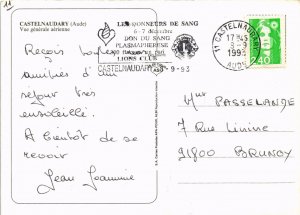 CASTELNAUDARY (Aude)
Vue générale aérienne
LES DONNEURS DE SANG
6-7 décembre
DON DU SANG
PLASMAPHERESE
LIONS CLUB
CASTELNAUDARY
-9-93
11 CASTELNAUDARY
17 H45
8-9
1993
AUDE
2,40
Reçois
amitiés d'un
séjour très
ensoleillé.
A bientôt de se
revoir
Jean Jeannine
Mme PASSELANDE
7 Rue
91800 BRUNOY